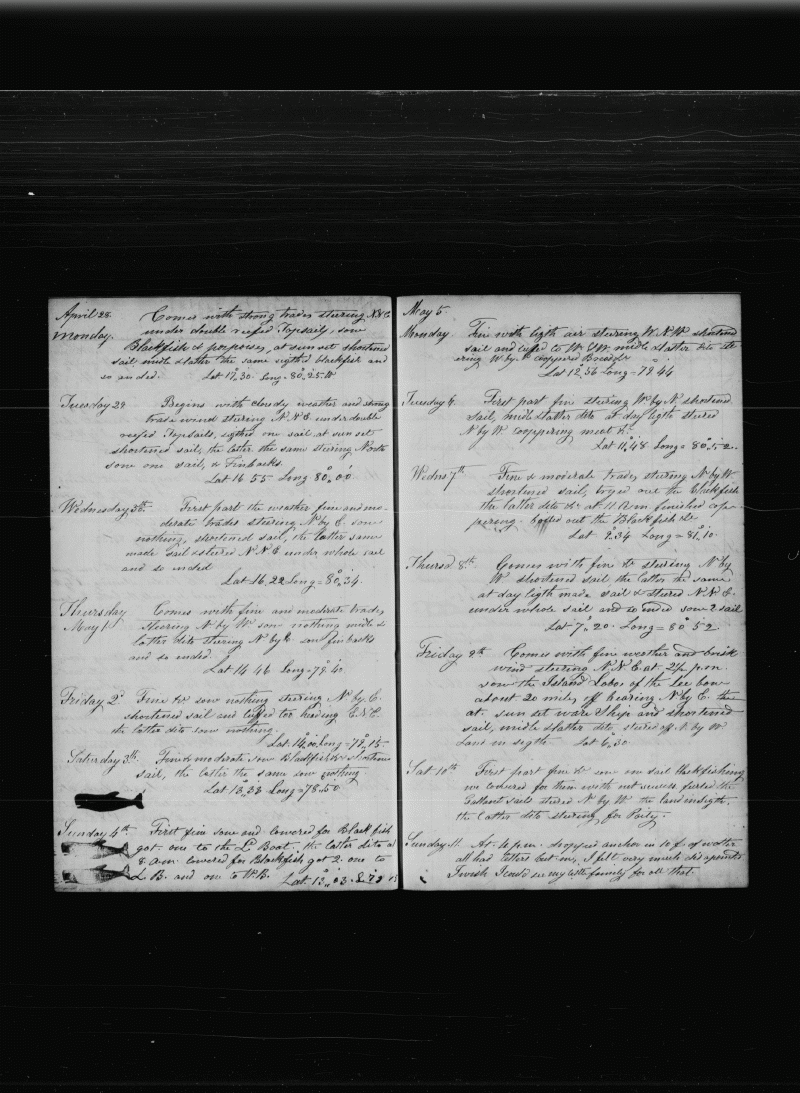 April 28. Comes with strong trades steering N.N.E.
Monday. under double reefed Topsails, sow
Blackfish & porposes, at sunset shortened
sail midle & latter the same sigthed blackfish and
so ended. Lat 17,,30. Long = 80,,25. W
Tuesday 29 Begins with cloudy weather and strong
trade wind stering N.N.E. under double
reefed Topsails, sigthed one sail at sun set
shortened sail, the latter the same stering North
sow one sail, & Finbacks.
Lat 16 55 Long 80,,00
Wednesday 30th. First part the weather fine and mo-
derate trades stering N by E. sow
nothing, shortened sail, the latter same
made sail & stered N N E under whole sail
and so ended
Lat 16 22 Long = 80,,34.
Thursday Comes with fine and moderate trades
May 1st stering N by W sow nothing midle &
latter dito stering N by E sow finbacks
and so ended.
Lat 14 46 Long = 79,,40.
Friday 2d Fine &c sow nothing stering N by E.
shortened sail and luffed too heding E.N.E.
the latter dito sow nothing.
Lat. 14,,00 Long = 79,,15-
Saturday 3th. Fine & moderate sow Blackfish & shortened
sail, the latter the same sow nothing
Lat 13,,36 Long = 78,,50
Sunday 4th First fine sow and lowered for Black fish
got one to the L Boat, the latter dito at
8 a.m. lowered for Blackfish got 2. one to
L B. and one to W.B. Lat. 13,,03.
May 5.
Monday Fine with ligth air stering W.N.W. shortened
sail and luffed to midle & latter dito ste-
ering W by N coppered
Lat 12,,56 Long = 79 44
Tuesday 6. First part fine stering W by N shortened
sail, midle & latter dito at day ligth stered
N by W. coppering meet &c
Lat 11,,48 Long = 80,,52.
Wedns 7th Fine & moderate trades stering N by W.
shortened sail, tryed out the Blackfish
the latter dito &c at 11 a.m finished cop-
pering. boiled out the Blackfish &c
Lat 9.34 Long = 81,,10.
Thursd 8th. Comes with fine &c stering N by
W. shortened sail the latter the same
at day ligth made sail & stered N.N.E.
under whole sail and so ended sow 2 sail
Lat 7,,20. Long = 80 52
Friday 9th. Comes with fine weather and brisk
wind stering N.N.E. at 2½ p.m.
sow the Island Lobos of the lee bow
about 20 miles off bearing N by E. the
at sun set ware Ship and shortened
sail, midle & latter dito stered off N. by W.
Land in sigth Lat 6,,30
Sat 10th First part fine &c sow one sail thickfishing
we lowered for them with not sucess furled the
Gallant sails stered N by W. the land in sigth,
the latter dito stering for Paity.
Sunday 11. At 4 p.m. dropped anchor in 10 f. of watter
all had letters but me, I felt very much disapointed
I wish I could see my little family for all that.